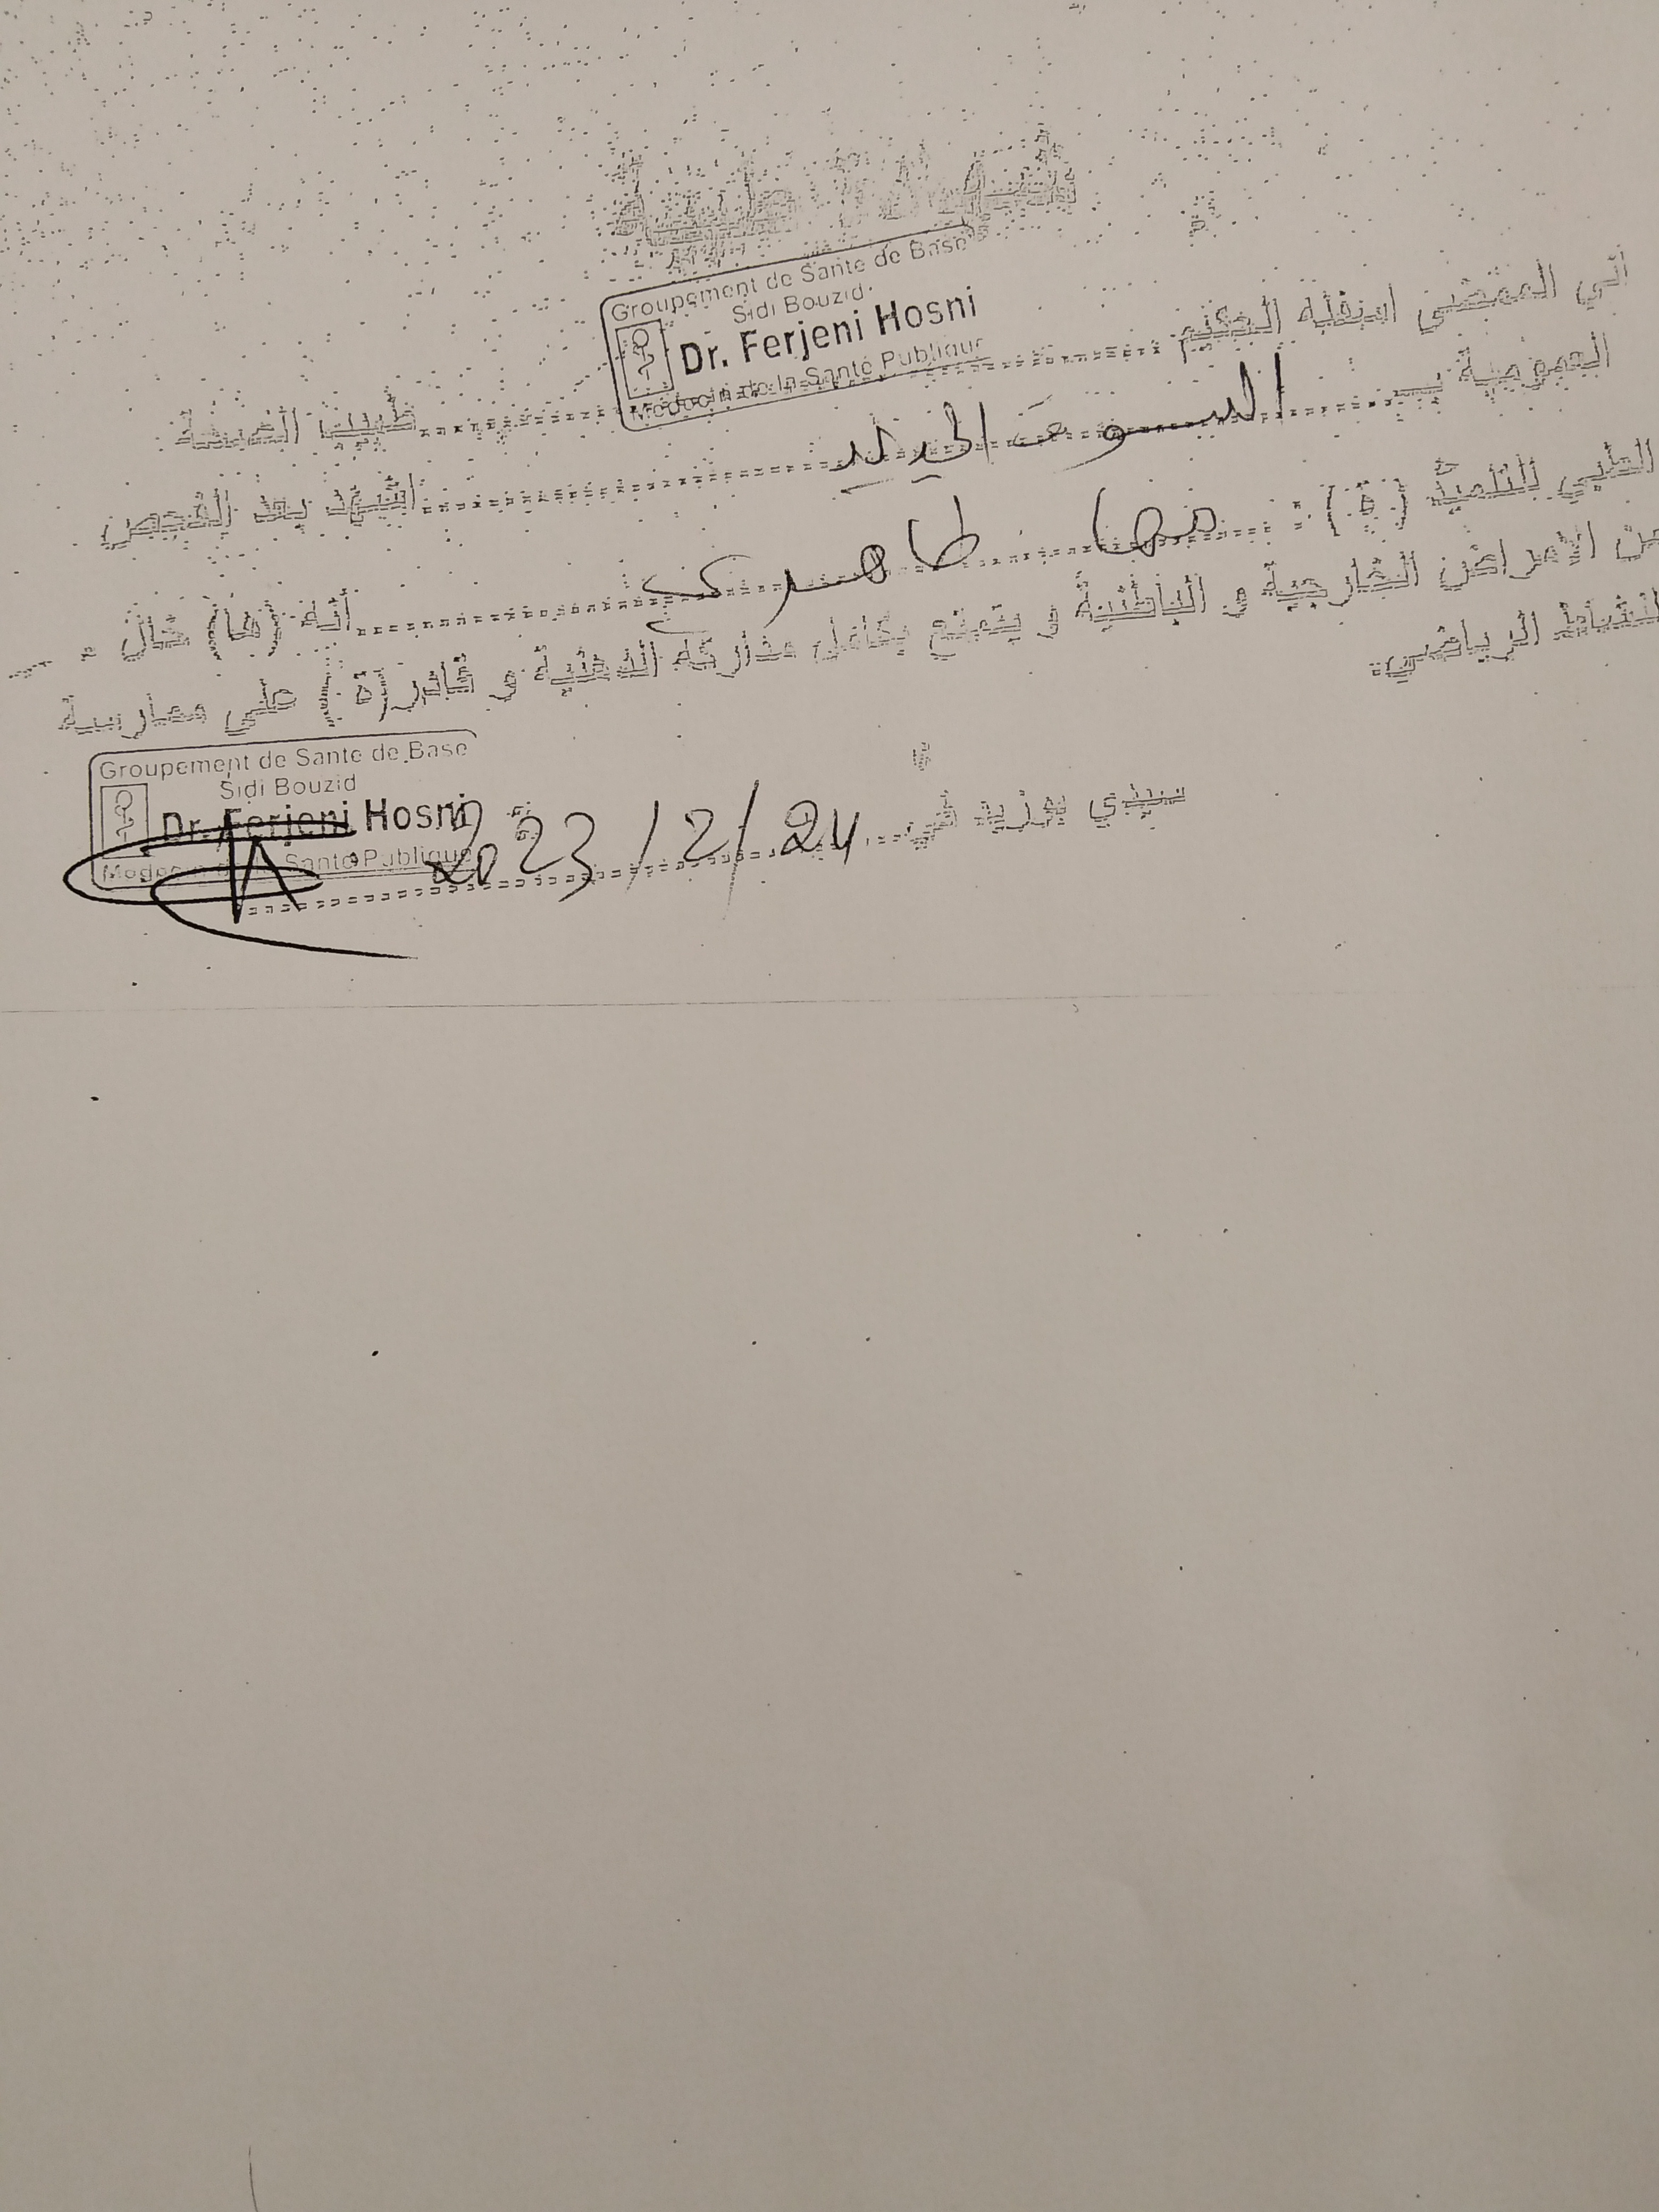 شهادة طبية
Groupement de Sante de Base
Sidi Bouzid
Dr. Ferjeni Hosni
Medecin de la Santé Publique
اني الممضي اسفله الحكيم ........ طبيب الصحة
العمومية بـ ..... السوق الجديد ..... اشهد بعد الفحص
الطبي للتلميذ (ة) : ... مها ... طاهري ..... أنه (ها) خال
من الامراض الخارجية و الباطنية و يتمتع بكامل مداركه الذهنية و قادر(ة) على ممارسة
النشاط الرياضي.
سيدي بوزيد في... 2023/2/24
Groupement de Sante de Base
Sidi Bouzid
Dr. Ferjeni Hosni
Medecin de la Santé Publique